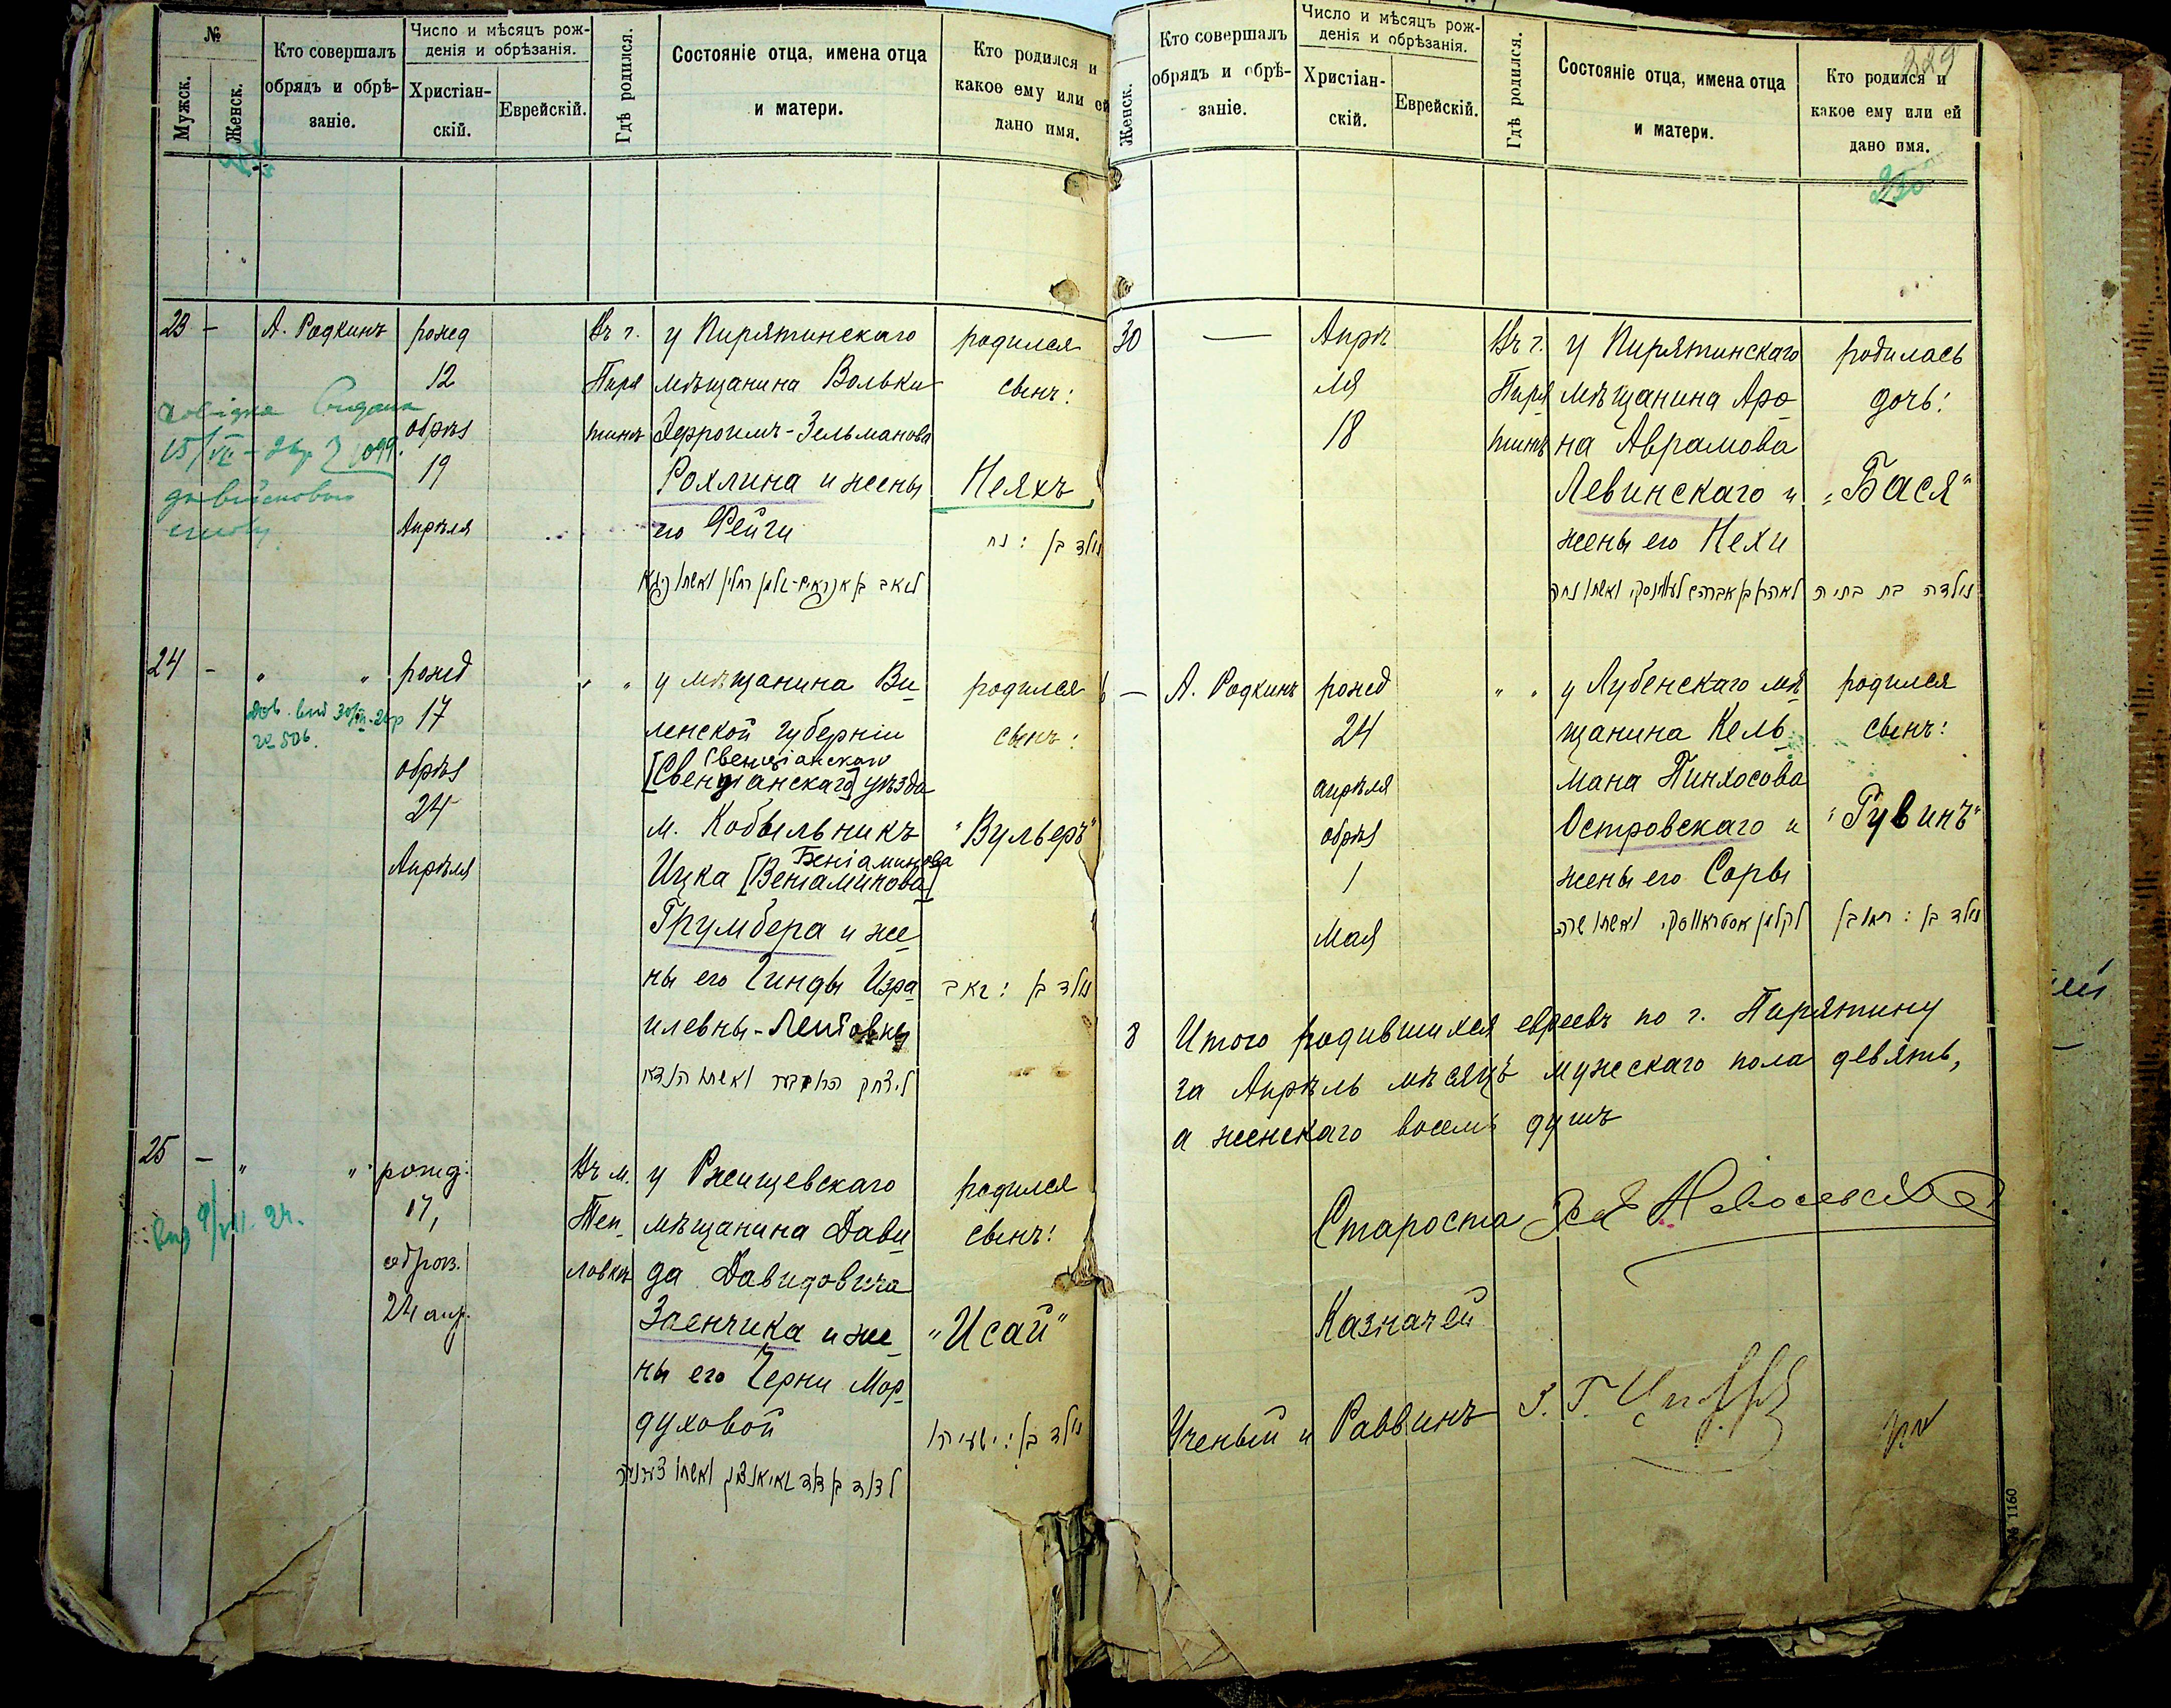 №
Мужск.
Женск.
Кто совершалъ
обрядъ и обрѣ-
заніе.
Число и мѣсяцъ рож-
денія и обрѣзанія.
Христіан-
скій.
Еврейскій.
Гдѣ родился.
Состояніе отца, имена отца
и матери.
Кто родился и
какое ему или ей
дано имя.
23 —
А. Радкинъ
рожд
12
обрѣз
19
Апрѣля
Въ г.
Пиря
тинѣ
у Пирятинскаго
мѣщанина Вольки
Эфроимъ-Зельманова
Рохлина и жены
его Фейги
родился
сынъ:
Неяхъ
נולד בן : נח
15/VII
24 —
" "
рожд
17
обрѣз
24
Апрѣля
" "
у мѣщанина Ви
ленской губерніи
Свенціанскаго
[Свенціанскаго] уѣзда
м. Кобыльникъ
Беніаминова
Ицка [Веніаминова]
Грумбера и же
ны его Гинды Изра
илевны-
родился
сынъ:
"Вульфъ"
נולד בן : זאב
25 —
" "
рожд.
17,
обрѣз.
24 апр.
Въ м.
Теп
ловкѣ
у Ржищевскаго
мѣщанина Дави
да Давидовича
Заенчика и же
ны его Черни Мор
духовой
родился
сынъ!
"Исай"
נולד בן : ישעיהו
Женск.
Кто совершалъ
обрядъ и обрѣ-
заніе.
Число и мѣсяцъ рож-
денія и обрѣзанія.
Христіан-
скій.
Еврейскій.
Гдѣ родился.
Состояніе отца, имена отца
и матери.
Кто родился и
какое ему или ей
дано имя.
229
30
—
Апрѣ
ля
18
Въ г.
Пиря
тинѣ
у Пирятинскаго
мѣщанина Аро
на Аврамова
Левинскаго и
жены его Нехи
родилась
дочь:
"Бася"
נולדה בת בתיה
—
А. Радкинъ
рожд
24
апрѣля
обрѣз
1
Мая
" "
у Лубенскаго мѣ
щанина Кель
мана Пинхосова
Островскаго и
жены его Соры
родился
сынъ:
"Рувинъ"
נולד בן : ראובן
8
Итого родившихся евреевъ по г. Пирятину
за Апрѣль мѣсяцъ мужескаго пола девять,
а женскаго восемь душъ
Староста
Казначей
Ученый и Раввинъ
№ 1160